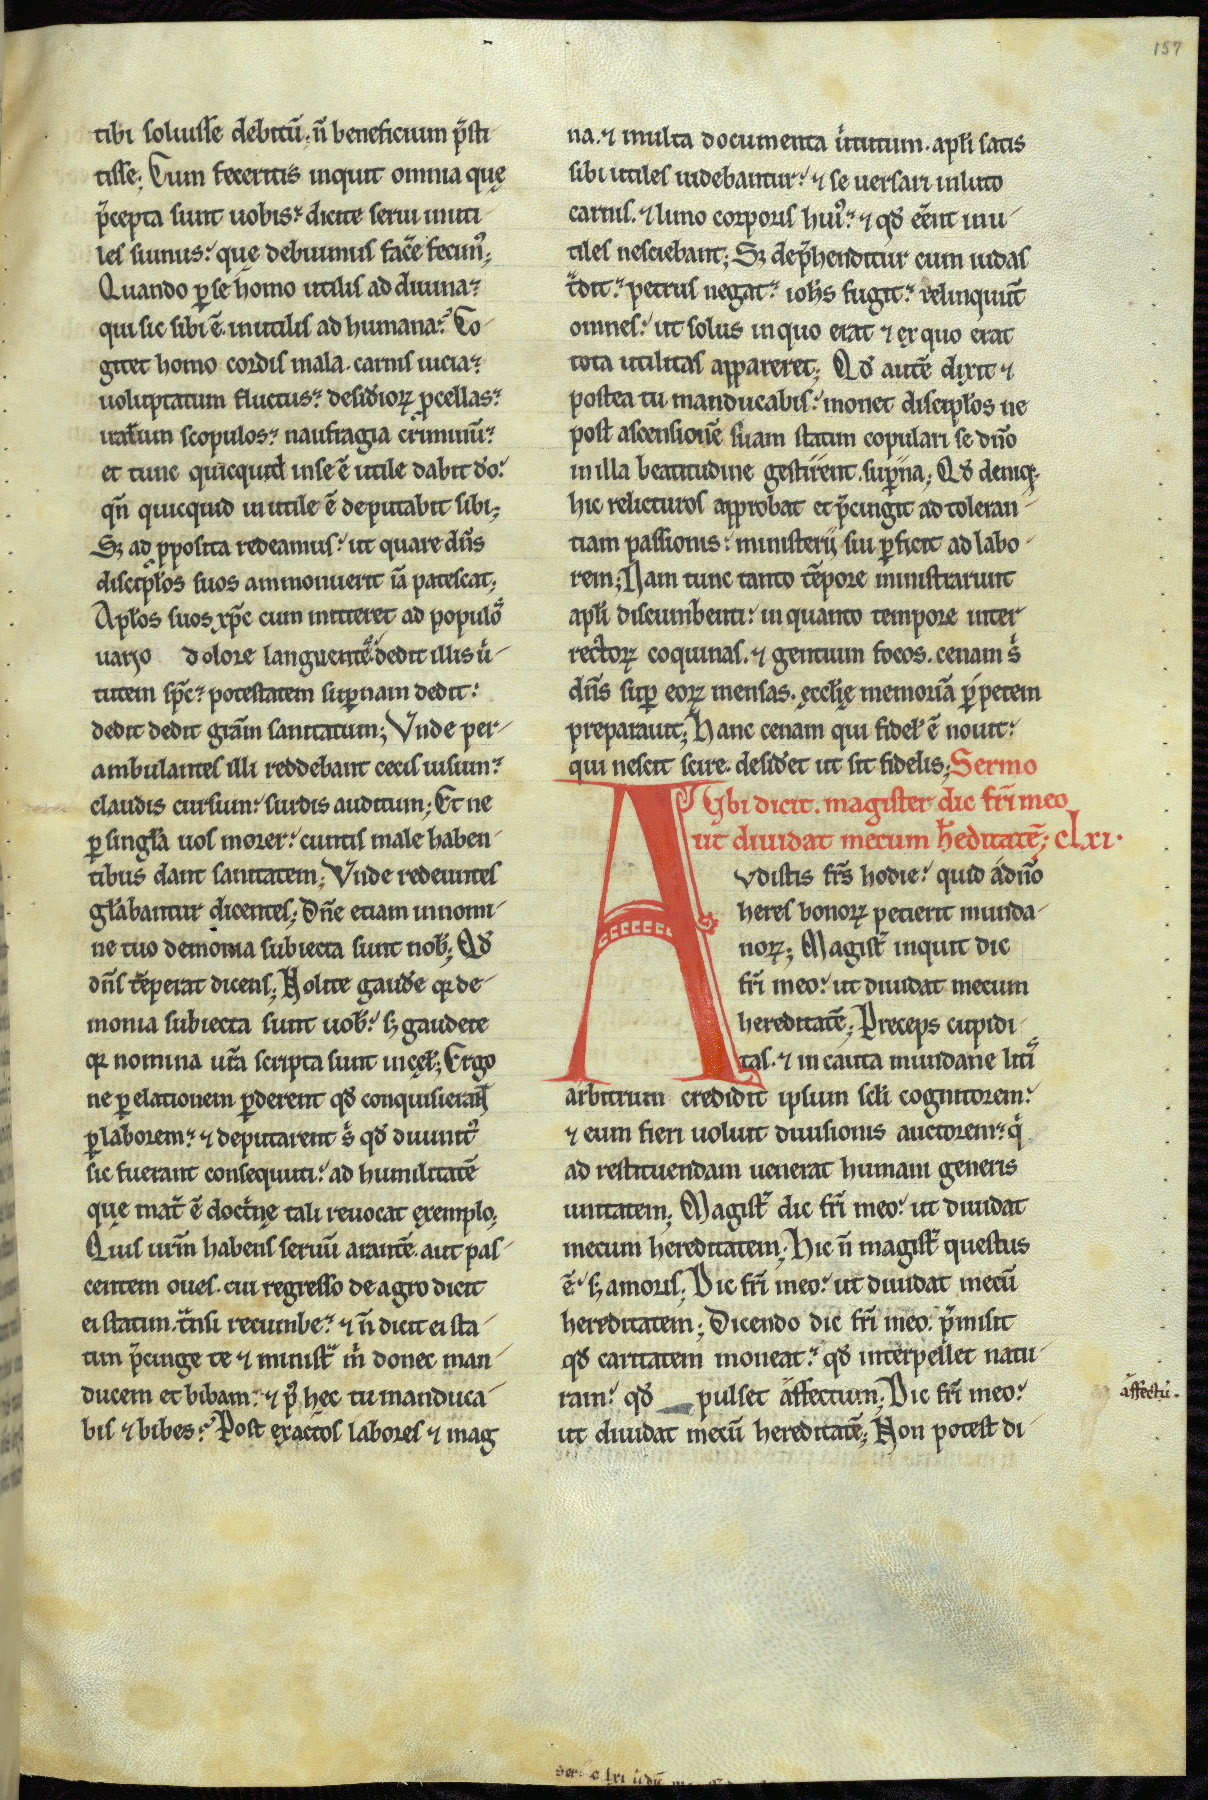 157
tibi soluisse debitū; n̄ beneficium p̄sti
tisse; Cum feceritis inquit omnia quę
p̄cepta sunt uobis: dicite serui inuti
les sumus: quę debuimus fac̄e fecim᷒;
Quando p̱ se homo utilis ad diuina:
qui sic sibi ē inutilis ad humana: Co
gitet homo cordis mala. carnis uicia:
uoluptatum fluctus: desidioꝝ ꝓcellas:
iratium scopulos: naufragia criminū:
et tunc quicquid in se ē utile dabit dō:
qn̄ quicquid inutile ē deputabit sibi;
Sꝫ ad ꝓposita redeamus: ut quare dn̄s
discipl̄os suos ammonuerit iā patescat;
Apl̄os suos xp̄c cum mitteret ad populō
uario dolore languentē: dedit illis ū
tutem sp̄c: potestatem sup̱nam dedit:
dedit dedit grām sanitatum; Vnde per
ambulantes illi reddebant cecis uisum:
claudis cursum: surdis auditum; Et ne
p̱ singl̄a uos morer: cuntis male haben
tibus dant sanitatem; Vnde redeuntes
gl̄abantur dicentes; Dn̄e etiam in nomi
ne tuo demonia subiecta sunt nob̄; Qđ
dn̄s tēperat dicens; Nolite gaudē qꝛ de
monia subiecta sunt uob̄: sꝫ gaudete
qꝛ nomina ur̄a scripta sunt in cęl̄; Ergo
ne p̱ elationem p̱derent qđ conquisierant
p̱ laborem: ⁊ deputarent s̄ qđ diuinit᷒
sic fuerant consequuti: ad humilitatē
que mat̄ ē doct̄nę tali reuocat exemplo;
Quis ur̄m habens seruū arantē. aut pas
centem oues. cui regresso de agro dicit
ei statim. t̄nsi recumbe: ⁊ n̄ dicit ei sta
tim p̄cinge te ⁊ minist̄ m̄ donec man
ducem et bibam: ⁊ p᷒ hec tu manduca
bis ⁊ bibes: Post exactos labores ⁊ mag
na. ⁊ multa documenta ūtutum. apl̄i satis
sibi utiles uidebantur: ⁊ se uersari in luto
carnis. ⁊ limo corporis hui᷒: ⁊ qđ eēnt inu
tiles nesciebant; Sꝫ dep̄henditur cum iudas
t̄dit: petrus negat: ioh̄s fugit: relinquūt
omnes: ut solus in quo erat ⁊ ex quo erat
tota utilitas appareret; Qđ autē dixit ⁊
postea tu manducabis: monet discipl̄os ne
post ascensionē suam statim copulari se dn̄o
in illa beatitudine gestirent sup̱na; Qđ deniqꝫ
hic relicturos approbat et p̄cingit ad toleran
tiam passionis: ministerij sui p̱ficit ad labo
rem; Nam tunc tanto tēpore ministrarunt
apl̄i discumbenti: in quanto tempore inter
rectoꝝ coquinas. ⁊ gentium focos. cenam s̄
dn̄s sup̱ eoꝝ mensas. ęccl̄ię memoriā p̱petem
preparauit; Hanc cenam qui fidel̄ ē nouit:
qui nescit scire. desidet ut sit fidelis; Sermo
Vbi dicit. magister dic fr̄i meo
ut diuidat mecum h̄editatē; clxi.
Avdistis fr̄s hodie: quid a dn̄o
heres bonoꝝ petierit munda
noꝝ; Magist̄ inquit dic
fr̄i meo: ut diuidat mecum
hereditatē; Preceps cupidi
tas. ⁊ incauta mundane liti᷒
arbitrum credidit ipsum scl̄i cognitorem:
⁊ eum fieri uoluit diuisionis auctorem: q̄
ad restituendam uenerat humani generis
unitatem; Magist̄ dic fr̄i meo: ut diuidat
mecum hereditatem; Hic n̄ magist̄ questus
ē: sꝫ amoris; Dic fr̄i meo: ut diuidat mecū
hereditatem; Dicendo dic fr̄i meo. p̄misit
qđ caritatem moneat: qđ interpellet natu
ram: qđ pulset affectum; Dic fr̄i meo:
affectū.
ut diuidat mecū hereditatē; Non potest di